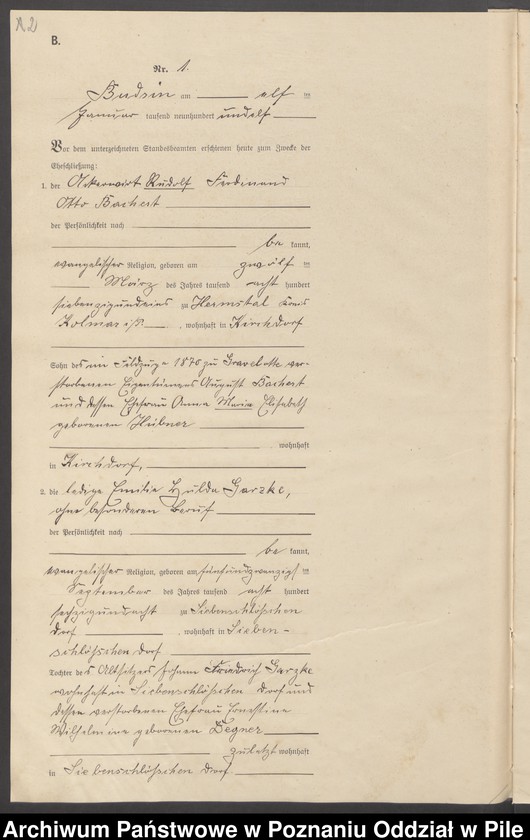 A2
B.
Nr. 1.
Budsin am elf ten
Januar tausend neunhundert undelf
Vor dem unterzeichneten Standesbeamten erschienen heute zum Zwecke der
Eheschließung:
1. der Ackerwirt Rudolf Ferdinand
Otto Bachert
der Persönlichkeit nach
be kannt,
evangelischer Religion, geboren am zwölf ten
März des Jahres tausend acht hundert
siebenzigundeins zu Hermstal Kreis
Kolmar i/P. , wohnhaft in Kirchdorf
Sohn des im Feldzuge 1870 zu Gravelotte ver-
storbenen Eigentümers August Bachert
und dessen Ehefrau Anna Maria Elisabeth
geborenen Hübner
wohnhaft
in Kirchdorf,
2. die ledige Emilie Hulda Garzke,
ohne besonderen Beruf
der Persönlichkeit nach
be kannt,
evangelischer Religion, geboren am fünfundzwanzigs ten
September des Jahres tausend acht hundert
sechzigundacht zu Siebenschlößchen
dorf , wohnhaft in Sieben-
schlößchen dorf
Tochter des Altsitzers Johann Friedrich Garzke
wohnhaft in Siebenschlößchen dorf und
dessen verstorbenen Ehefrau Ernestine
Wilhelmine geborenen Degner
zuletzt wohnhaft
in Siebenschlößchen dorf.
Archiwum Państwowe w Poznaniu Oddział w Pile